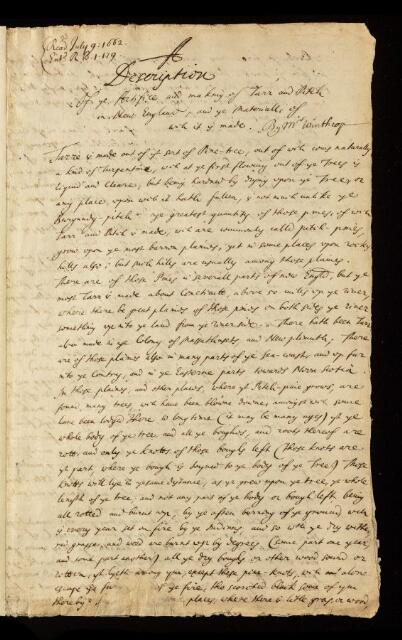 Read July 9: 1662.
Entd R. B. 1. 179.
A
Description
Of ye Artifice and making of Tarr and Pitch
in New England, and ye Materialls of
wch it is made. By Mr Winthrop
Tarre is made out of yt sort of Pine-tree, out of wch coms naturaly
a kind of Terpentine, wch at ye first flowing out of ye Trees is
liquid and cleare, but being hardned by drying upon ye Trees or
any place, upon wch it hath fallen, is not much unlike ye
Burgundy-pitch: ye greatest quantity of those pines, of wch
Tarr and Pitch is made, wch are commonly called pitch-pines,
grow upon ye most barren plaines, yet in some places upon rocky
hills also; but such hills are usually among those plaines.
There are of those Pines in severall parts of new Engld, but ye
most Tarr is made about Conecticute, above 50 miles up ye river,
where there be great plaines of those pines on both sides ye river
something up into ye land from ye river side. There hath been Tarr
also made in ye Colony of Massachusets, and New plimmth; There
are of those plaines also in many parts of ye sea-coasts, and up farr
into ye Contry, and in ye Easterne parts towards Nova Scotia.
In those plaines, and other places, where yt Pitch-pine grows, are
found, many trees, wch have been blowne downe, amongst wch some
have been lodged there so long time (it may be many ages) yt ye
whole body of ye tree and all ye boughes, and roots thereof are
rott, and only ye knotts of those boughs left (Those knotts are
yt part, where ye bough is joyned to ye body of ye tree) Those
knotts will lye at ye same distance, as ye grew upon ye tree, ye whole
length of ye tree, and not any part of ye body or bough left being
all rotted and burnt up, by ye often burning of ye ground wch
is every year set on fire by ye Indians, and so wth ye dry withe
red grasse, and weed are burnt up by degrees (some part one year,
and some part another) all ye dry boughs or other wood sound or
rotten, yt lyeth among ym, except these pine-knots, wch out alone
escape ye of ye fire, the scorched black some of ym
thereby places, where there is litle grass, or wood